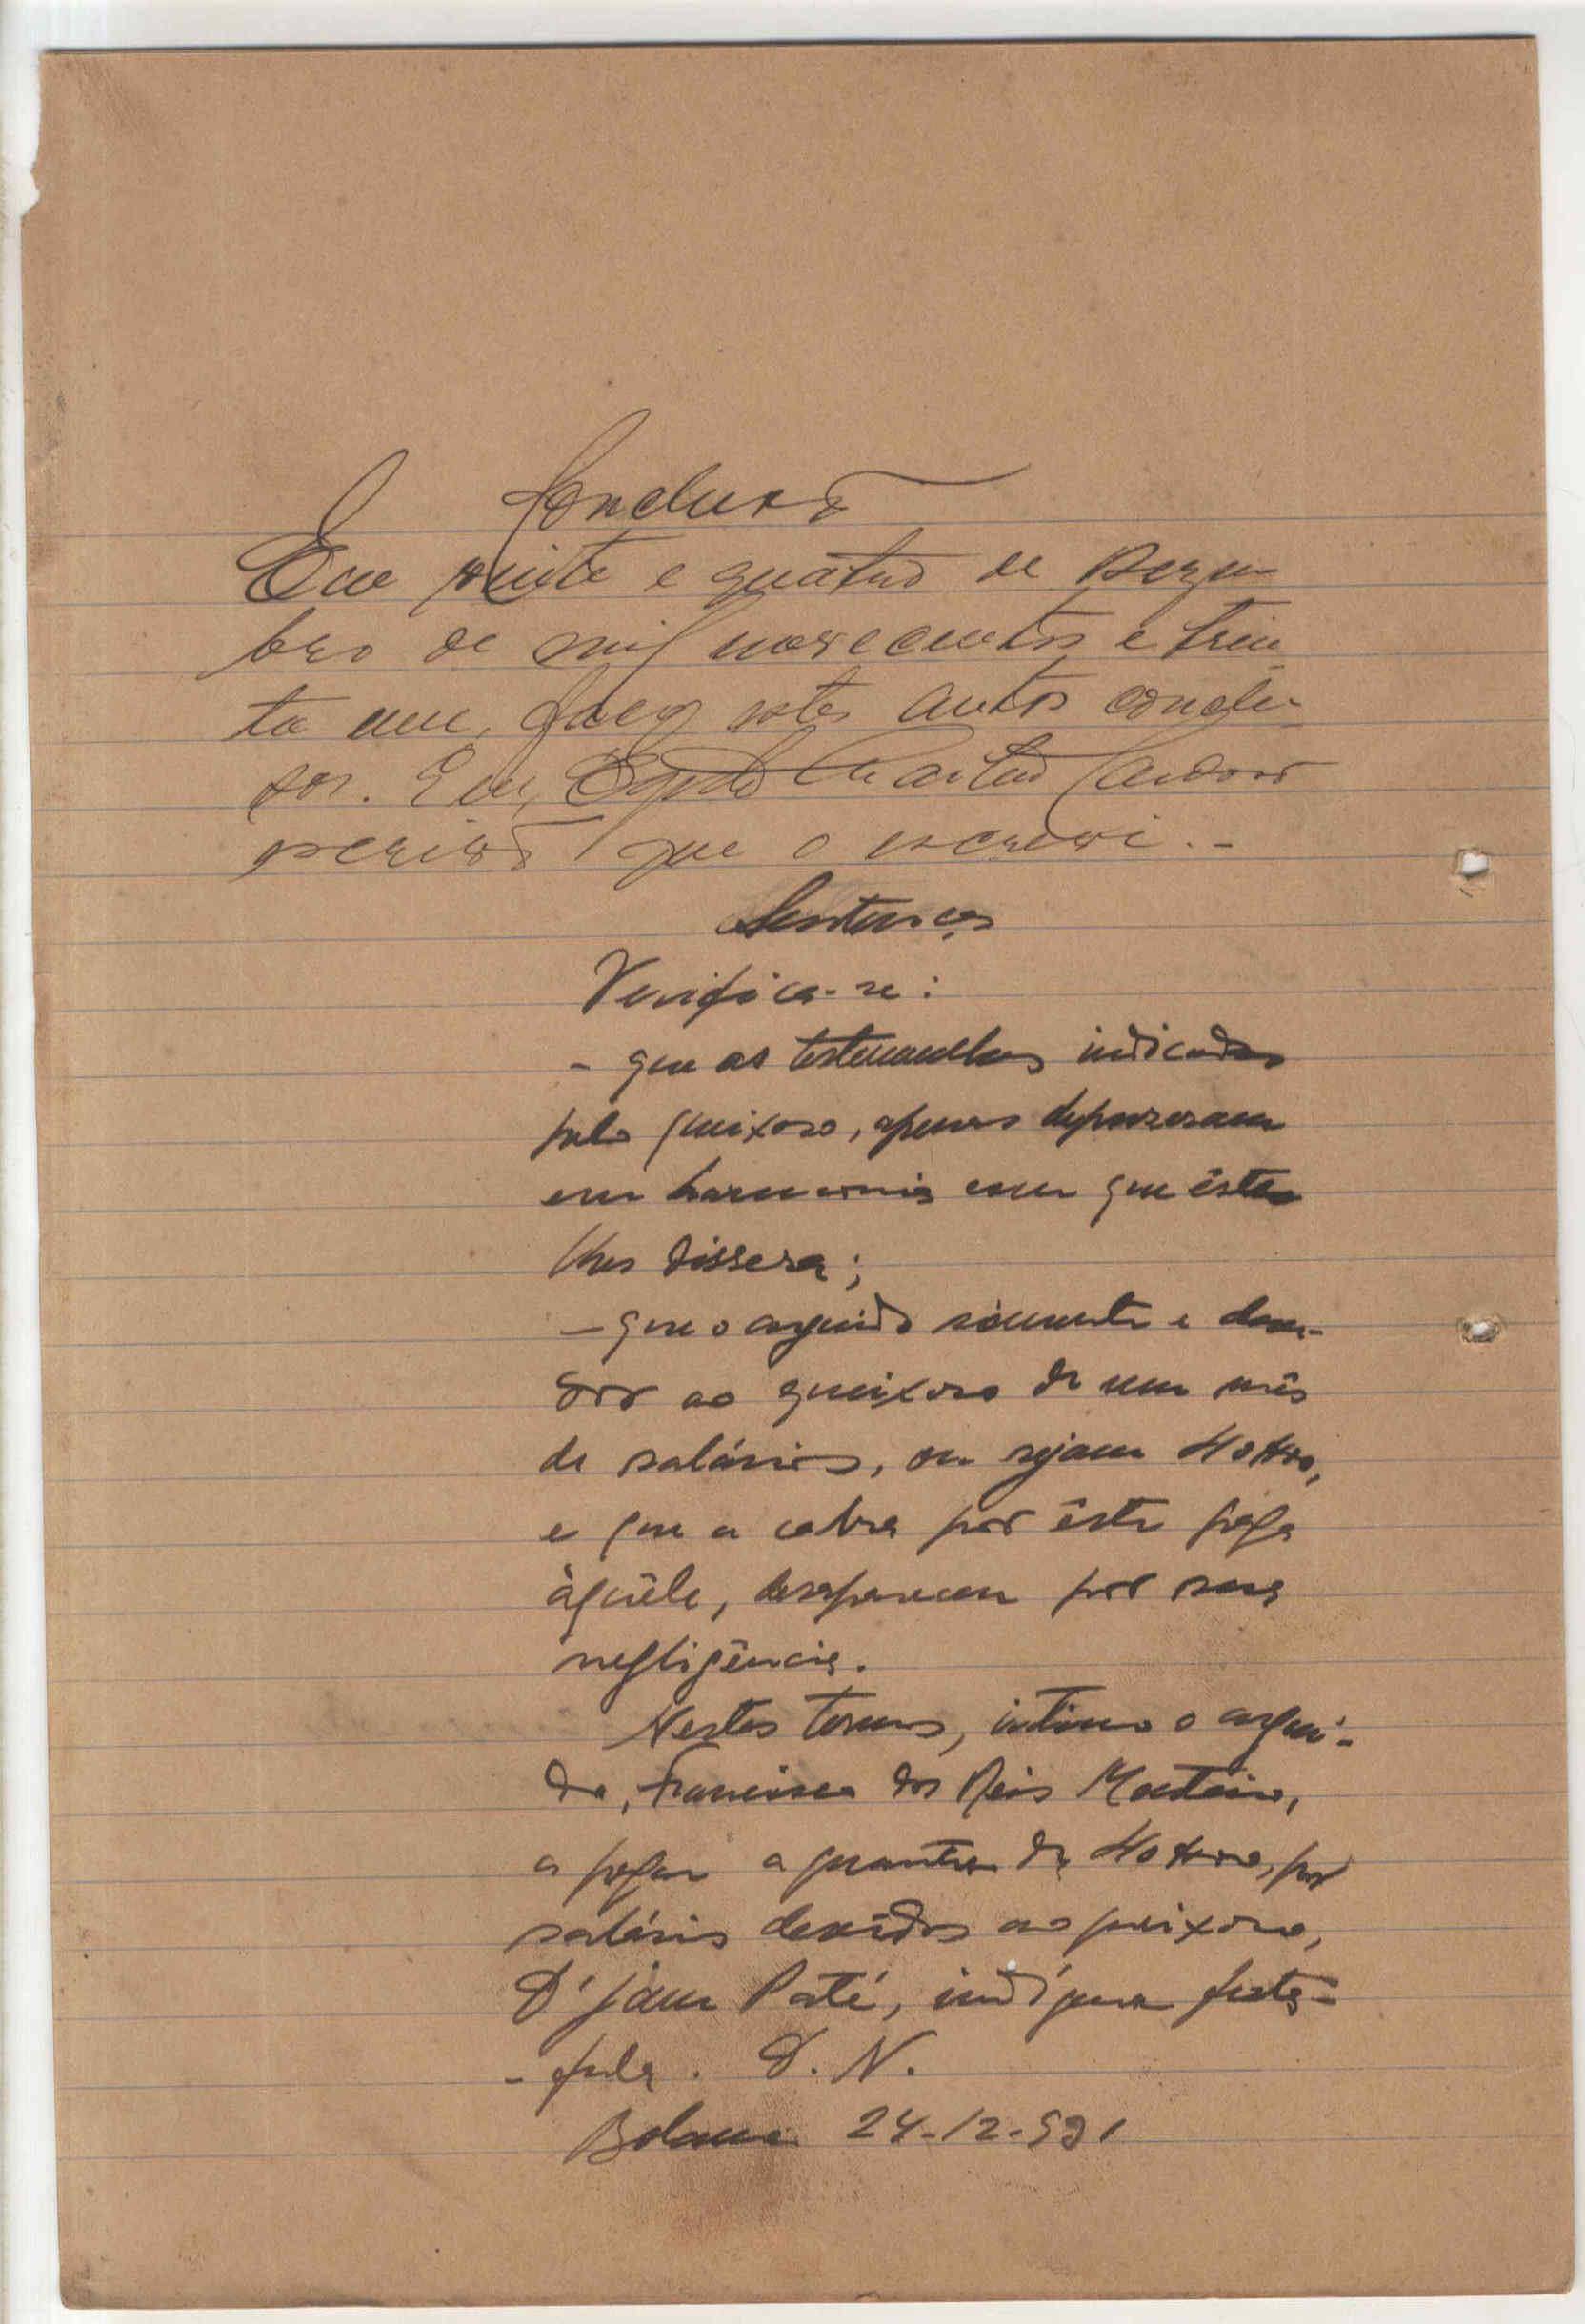 Conclusão
Em vinte e quatro de Dezem
bro de mil novecentos e trin
ta um, faço estes autos conclu-
sos. Eu, Cardoso
escrivão que o escrevi. -
Sentença
Verifica-se:
- que as testemunhas indicadas
pelo queixoso, apenas depozeram
em harmonia com que êste
lhes dissera;
- que o arguido sómente é deve-
dor ao queixoso de um mês
de salários, ou sejam 40$00,
e que a cabra por êste paga
àquêle, desapareceu por sua
negligência.
Nestes termos, intimo o argui-
do, Francisco dos Reis Monteiro,
a pagar a quantia de 40$00, por
salários devidos ao queixoso,
D'jam Paté, indígena futa-
- fula. D. N.
Bolama 24-12-931